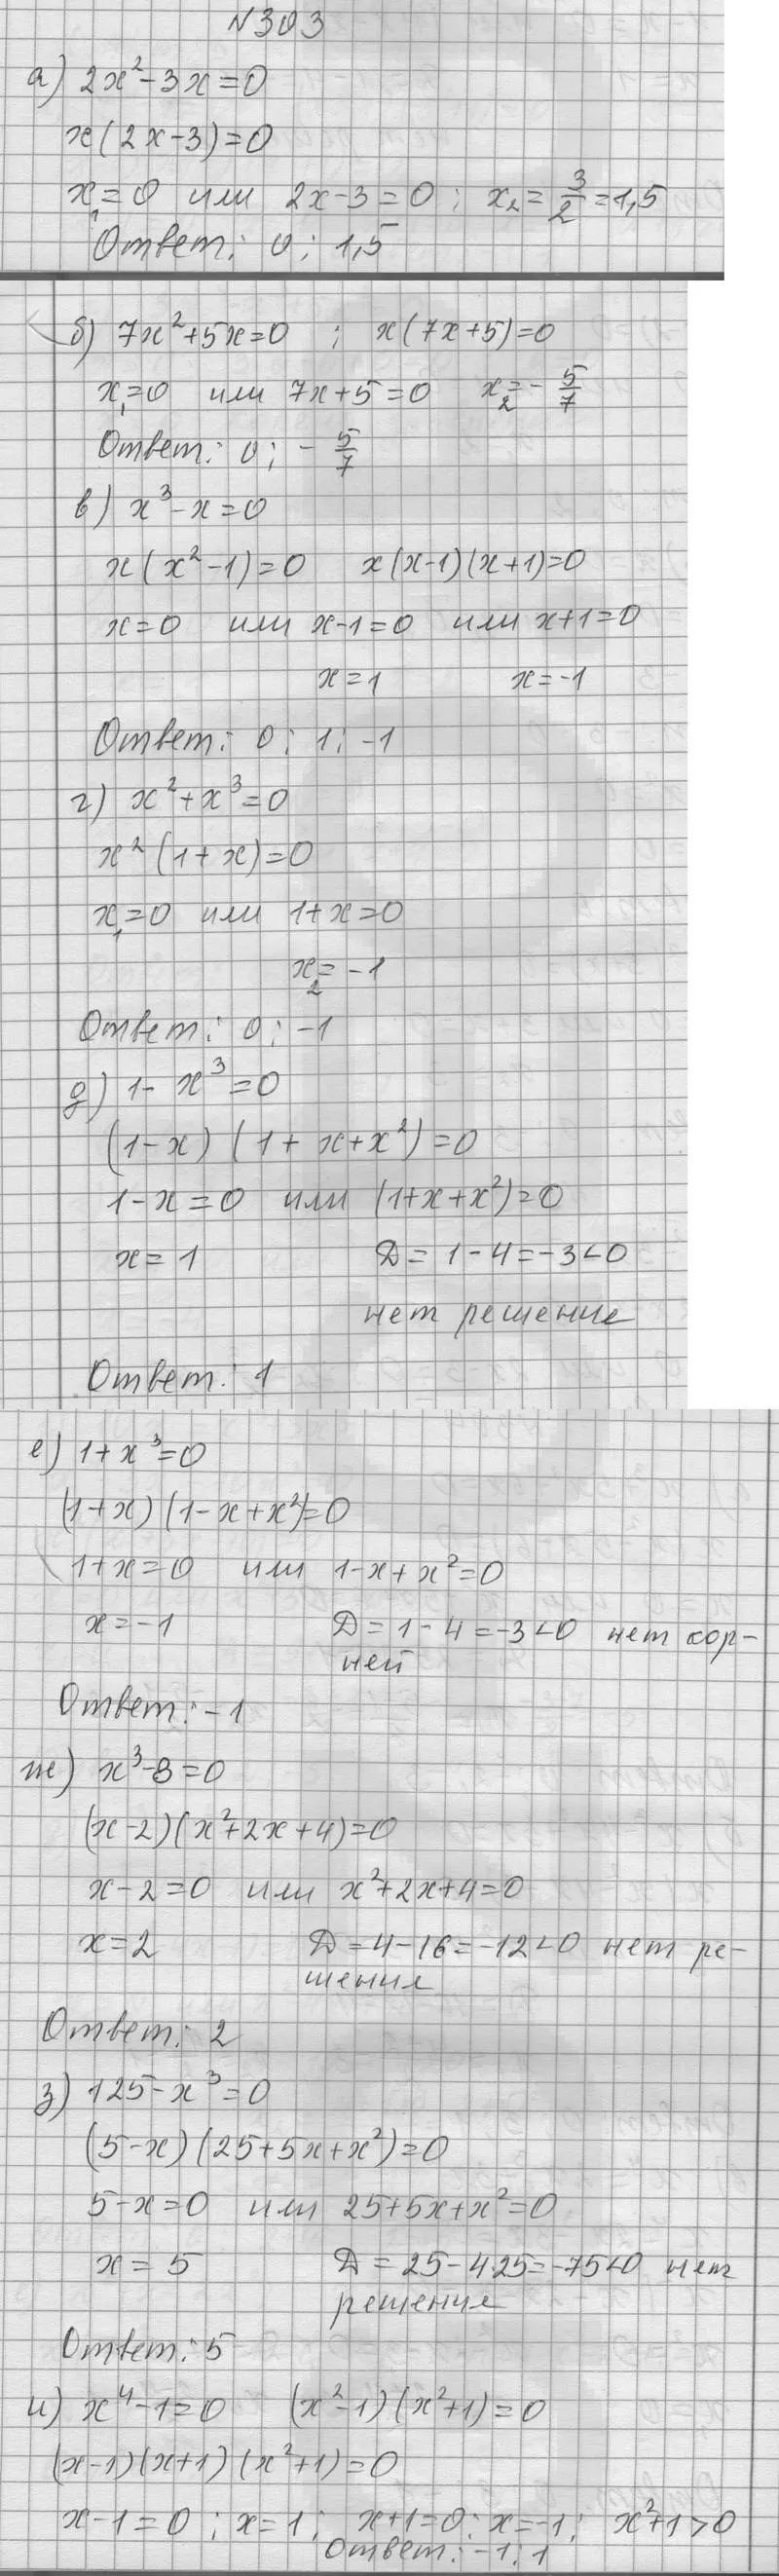 №303
а) 2x²-3x=0
x(2x-3)=0
x₁=0 или 2x-3=0; x₂=3/2=1,5
Ответ: 0; 1,5
б) 7x²+5x=0 ; x(7x+5)=0
x₁=0 или 7x+5=0 x₂=-5/7
Ответ: 0; -5/7
в) x³-x=0
x(x²-1)=0 x(x-1)(x+1)=0
x=0 или x-1=0 или x+1=0
x=1 x=-1
Ответ: 0; 1; -1
г) x²+x³=0
x²(1+x)=0
x₁=0 или 1+x=0
x₂=-1
Ответ: 0; -1
д) 1-x³=0
(1-x)(1+x+x²)=0
1-x=0 или (1+x+x²)=0
x=1 D=1-4=-3<0
нет решение
Ответ: 1
е) 1+x³=0
(1+x)(1-x+x²)=0
1+x=0 или 1-x+x²=0
x=-1 D=1-4=-3<0 нет кор-
ней
Ответ: -1
ж) x³-8=0
(x-2)(x²+2x+4)=0
x-2=0 или x²+2x+4=0
x=2 D=4-16=-12<0 нет ре-
шения
Ответ: 2
з) 125-x³=0
(5-x)(25+5x+x²)=0
5-x=0 или 25+5x+x²=0
x=5 D=25-4·25=-75<0 нет
решение
Ответ: 5
и) x⁴-1=0 (x²-1)(x²+1)=0
(x-1)(x+1)(x²+1)=0
x-1=0; x=1; x+1=0; x=-1; x²+1>0
Ответ: -1; 1